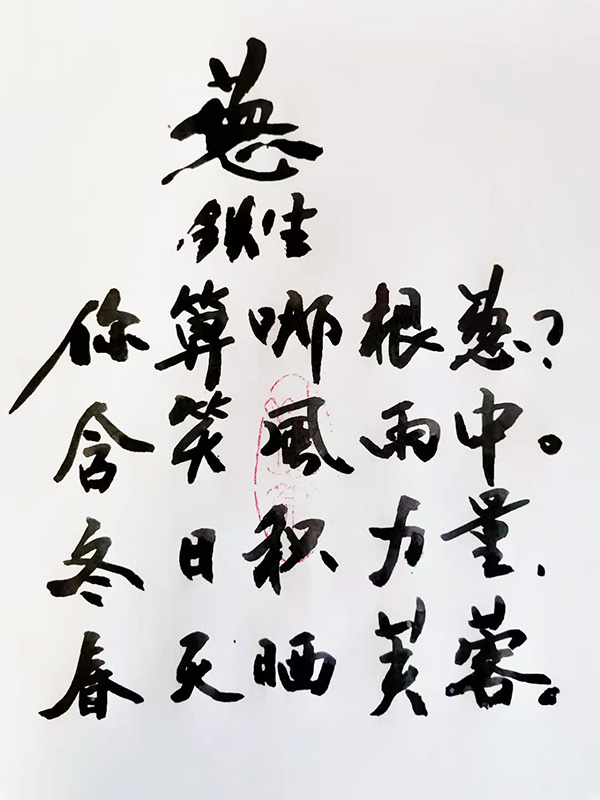 葱
生
你算哪根葱?
含笑風雨中。
冬日积力量,
春天晒芙蓉。